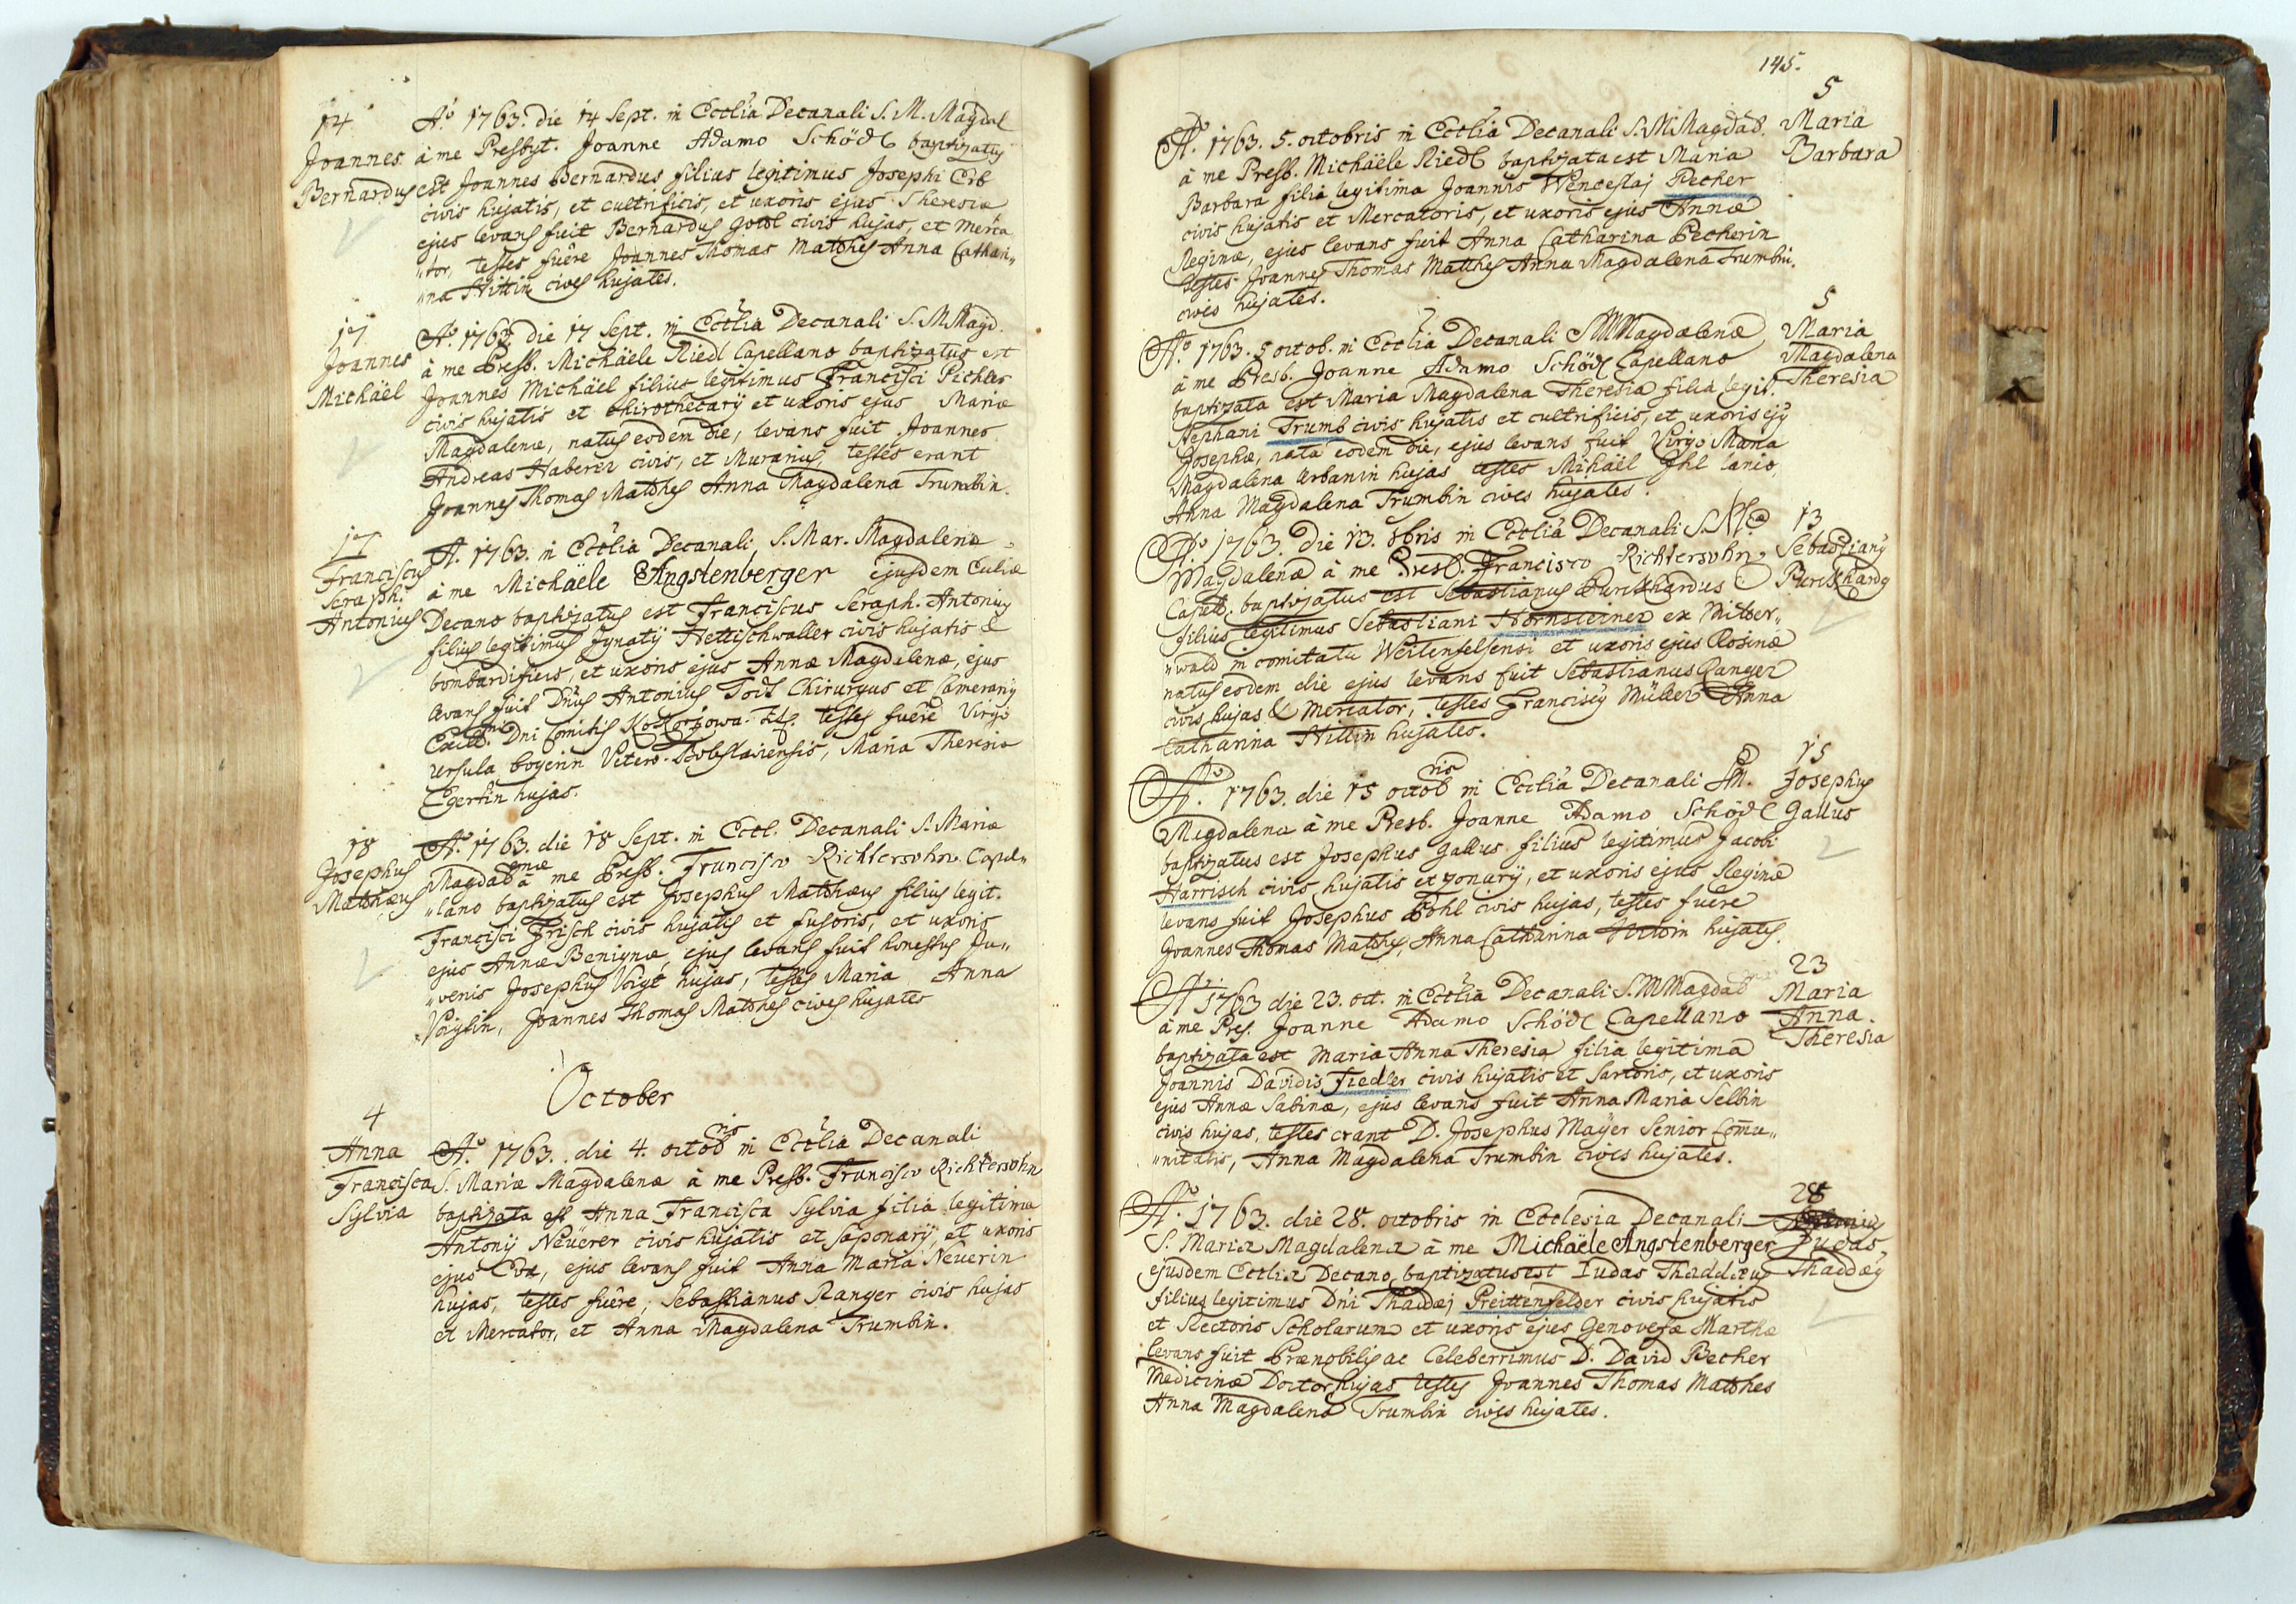 14
Joannes
Bernardus
Aº. 1763. die 14 Sept. in Ecclia Decanali S. M. Magdal
à me Presbyt. Joanne Adamo Schödl baptizatus
est Joannes Bernardus filius legitimus Josephi Erb
civis hujatis, et cultrificis, et uxoris ejus Theresiæ
ejus levans fuit Bernardus civis hujas, et Merca
"tor, testes fuêre Joannes Thomas Matthes Anna Cathari"
"na Hittin cives hujates.
17
Joannes
Michäel
Aº. 1763. die 17 Sept. in Ecclia Decanali S. M Magd.
à me Presb. Michäele Riedl Capellano baptizatus est
Joannes Michäel filius legitimus Francisci Pichler
civis hujatis et chirothecarÿ et uxoris ejus Mariæ
Magdalenæ, natus eodem die, levans fuit Joannes
Andreas Haberer civis, et Murarius, testes erant
Joannes Thomas Matthes Anna Magdalena Trumbin.
17
Franciscus
Seraph:
Antonius
A. 1763. in Ecclia Decanali S. Mar. Magdalenæ
à me Michäele Angstenberger ejusdem Ecliæ
Decano baptizatus est Franciscus Seraph. Antonius
filius legitimus Ignatÿ Hettischwaller civis hujatis &
bombardificis, et uxoris ejus Annæ Magdalenæ, ejus
levans fuit Dñus Antonius Chirurgus et Camerariÿ
Excell. Dni Comitis Kokorzowa testes fuêre Virgo
Ursula Vetero-Boleslaviensis, Maria Theresia
Egertin hujas.
18
Josephus
Matthæus
Aº. 1763. die 18 Sept. in Eccl. Decanali S. Mariæ
Magdalenæ à me Presb. Francisco Richtersohn Capel"
"lano baptizatus est Josephus Matthæus filius legit.
Francisci Frisch civis hujatis et fusoris, et uxoris
ejus Annæ Benignæ, ejus levans fuit honestus Ju"
"venis Josephus Voigt hujas, testes Maria Anna
Voigtin, Joannes Thomas Matthes cives hujates
October
4
Anna
Francisca
Sylvia
Aº. 1763. die 4. octobris in Ecclia Decanali
S. Mariæ Magdalenæ à me Presb. Francisco Richtersohn
baptizata est Anna Francisca Sylvia filia legitima
Antonÿ Neüerer civis hujatis et Saponarÿ, et uxoris
ejus Evæ, ejus levans fuit Anna Maria Neuerin
hujas, testes fuêre, Sebastianus Ranger civis hujas
et Mercator, et Anna Magdalena Trumbin.
145.
5
Maria
Barbara
Aº. 1763. 5. octobris in Ecclia Decanali S. M Magdal.
à me Presb. Michäele Riedl baptizata est Maria
Barbara filia legitima Joannis Wenceslaj Pecher
civis hujatis et Mercatoris, et uxoris ejus Annæ
Reginæ, ejus levans fuit Anna Catharina Pecherin
testes Joannes Thomas Matthes Anna Magdalena Trumbin.
cives hujates.
5
Maria
Magdalena
Theresia
Aº. 1763. 5 octob. in Ecclia Decanali S M Magdalenæ
à me Presb. Joanne Adamo Schödl Capellano
baptizata est Maria Magdalena Theresia filia legit.
Stephani Trumb civis hujatis et cultrificis, et uxoris ejÿ
Josephæ, nata eodem die, ejus levans fuit Virgo Maria
Magdalena Urbanin hujas testes Mihäel Ihl lanio
Anna Magdalena Trumbin cives hujates.
13
Sebastianÿ
Burckhardÿ
Aº. 1763. Die 13. 8bris in Ecclia Decanali S. Mæ
Magdalenæ à me Presb. Francisco Richtersohn
Capell. baptizatus est Sebastianus Burckhardus
filius legitimus Sebastiani Hornsteiner ex Mitter"
"wald in comitatu Wertenfelsensi et uxoris ejus Rosinæ
natus eodem die ejus levans fuit Sebastianus Ranger
civis hujas & Mercator, testes Franciscÿ Müller Anna
Catharina Hittin hujates.
15
Josephus
Gallus
Aº. 1763. die 15 octobris in Ecclia Decanali S M.
Magdalena à me Presb. Joanne Adamo Schödl
baptizatus est Josephus Gallus filius legitimus Jacobi
Harrisch civis hujatis et zonarÿ, et uxoris ejus Reginæ
levans fuit Josephus Pohl civis hujas, testes fuêre
Joannes Thomas Matthes, Anna Catharina Hittin hujates.
23
Maria
Anna
Theresia
Aº 1763 die 23. oct. in Ecclia Decanali S. M Magdal
à me Pres. Joanne Adamo Schödl Capellano
baptizata est Maria Anna Theresia filia legitima
Joannis Davidis Fiedler civis hujatis et Sartoris, et uxoris
ejus Annæ Sabinæ, ejus levans fuit Anna Maria Selbin
civis hujas, testes erant D. Josephus Maÿer Senior Comu"
"nitatis, Anna Magdalena Trumbin cives hujates.
28
Judas
Thaddæÿ
Aº. 1763. die 28. octobris in Ecclesia Decanali
S. Mariæ Magdalenæ à me Michäele Angstenberger
ejusdem Eccliæ Decano, baptizatus est Iudas Thaddæus
filius legitimus Dñi Thaddæj Preittenfelder civis hujatis
et Rectoris Scholarum et uxoris ejus Genovefæ Marthæ
levans fuit Prænobilis ac Celeberrimus D. David Becher
Medicinæ Doctor hujas testes Joannes Thomas Matthes
Anna Magdalena Trumbin cives hujates.